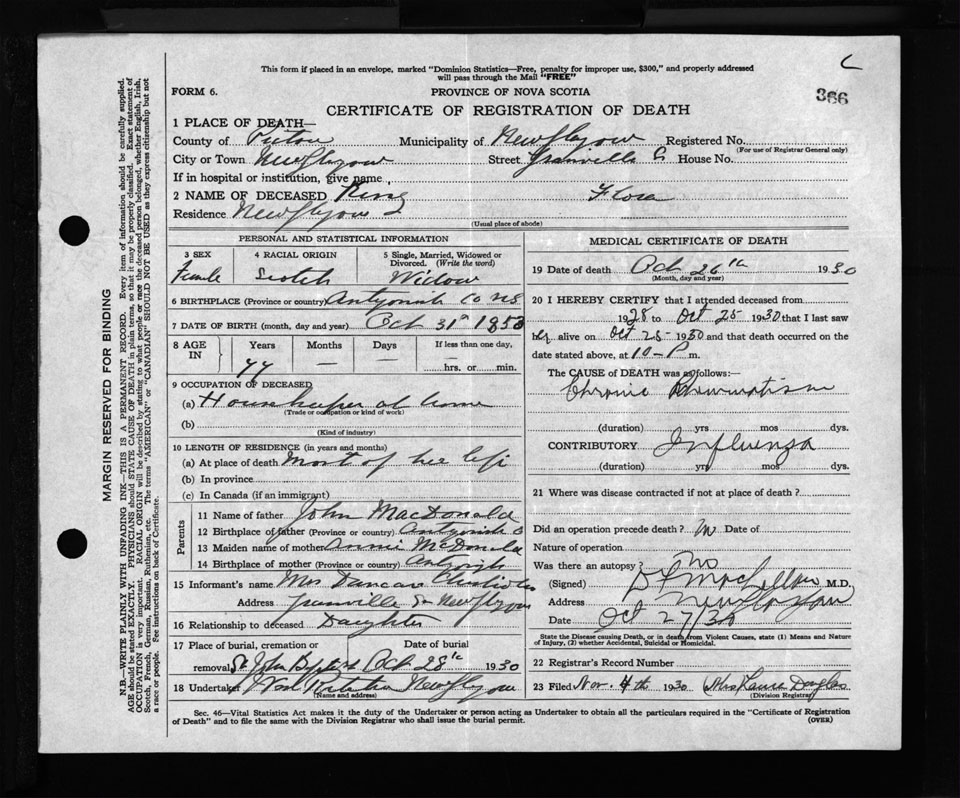 This form if placed in an envelope, marked "Dominion Statistics—Free, penalty for improper use, $300," and properly addressed
will pass through the Mail "FREE"
FORM 6.
PROVINCE OF NOVA SCOTIA
366
CERTIFICATE OF REGISTRATION OF DEATH
1 PLACE OF DEATH—
County of Pictou Municipality of New Glasgow Registered No.
(For use of Registrar General only)
City or Town New Glasgow Street Granville St House No.
If in hospital or institution, give name
2 NAME OF DECEASED King Flora
Residence New Glasgow
(Usual place of abode)
PERSONAL AND STATISTICAL INFORMATION
3 SEX 4 RACIAL ORIGIN 5 Single, Married, Widowed or Divorced. (Write the word)
Female Scotch Widow
6 BIRTHPLACE (Province or country) Antigonish Co NS
7 DATE OF BIRTH (month, day and year) Oct 31st 1853
8 AGE IN Years Months Days If less than one day,
77 — — hrs. or min.
9 OCCUPATION OF DECEASED
(a) Housekeeper at home
(Trade or occupation or kind of work)
(b)
(Kind of industry)
10 LENGTH OF RESIDENCE (in years and months)
(a) At place of death Most of her life
(b) In province
(c) In Canada (if an immigrant)
Parents
11 Name of father John MacDonald
12 Birthplace of father (Province or country) Antigonish
13 Maiden name of mother Annie McDonald
14 Birthplace of mother (Province or country) Antigonish
15 Informant's name Mrs Duncan Chisholm
Address Granville St New Glasgow
16 Relationship to deceased Daughter
17 Place of burial, cremation or removal Date of burial
St John Baptist Oct 28th 1930
18 Undertaker New Glasgow
(Name and address)
MEDICAL CERTIFICATE OF DEATH
19 Date of death Oct 26th 1930
(Month, day and year)
20 I HEREBY CERTIFY that I attended deceased from
1928 to Oct 25 1930 that I last saw
her alive on Oct 25 1930 and that death occurred on the
date stated above, at 10-P m.
The CAUSE of DEATH was as follows:—
Chronic Rheumatism
(duration) yrs mos dys.
CONTRIBUTORY Influenza
(duration) yrs mos dys.
21 Where was disease contracted if not at place of death?
Did an operation precede death? no Date of
Nature of operation
Was there an autopsy? no
(Signed) MacLellan M.D.
Address New Glasgow
Date Oct 27/30
State the Disease causing Death, or in death from Violent Causes, state (1) Means and Nature
of Injury, (2) whether Accidental, Suicidal or Homicidal.
22 Registrar's Record Number
23 Filed Nov. 4th 1930 Mrs Laura Douglas
(Division Registrar)
Sec. 46—Vital Statistics Act makes it the duty of the Undertaker or person acting as Undertaker to obtain all the particulars required in the "Certificate of Registration
of Death" and to file the same with the Division Registrar who shall issue the burial permit.
(OVER)
MARGIN RESERVED FOR BINDING
N.B.—WRITE PLAINLY WITH UNFADING INK—THIS IS A PERMANENT RECORD. Every item of information should be carefully supplied.
AGE should be stated EXACTLY. PHYSICIANS should STATE CAUSE OF DEATH in plain terms, so that it may be properly classified. Exact statement of
OCCUPATION is very important. RACIAL ORIGIN will be described by stating to what people or race the deceased person belonged, whether English, Irish,
Scotch, French, German, Russian, Ruthenian, etc. The terms "AMERICAN" or "CANADIAN" SHOULD NOT BE USED as they express citizenship but not
a race or people. See instructions on back of Certificate.